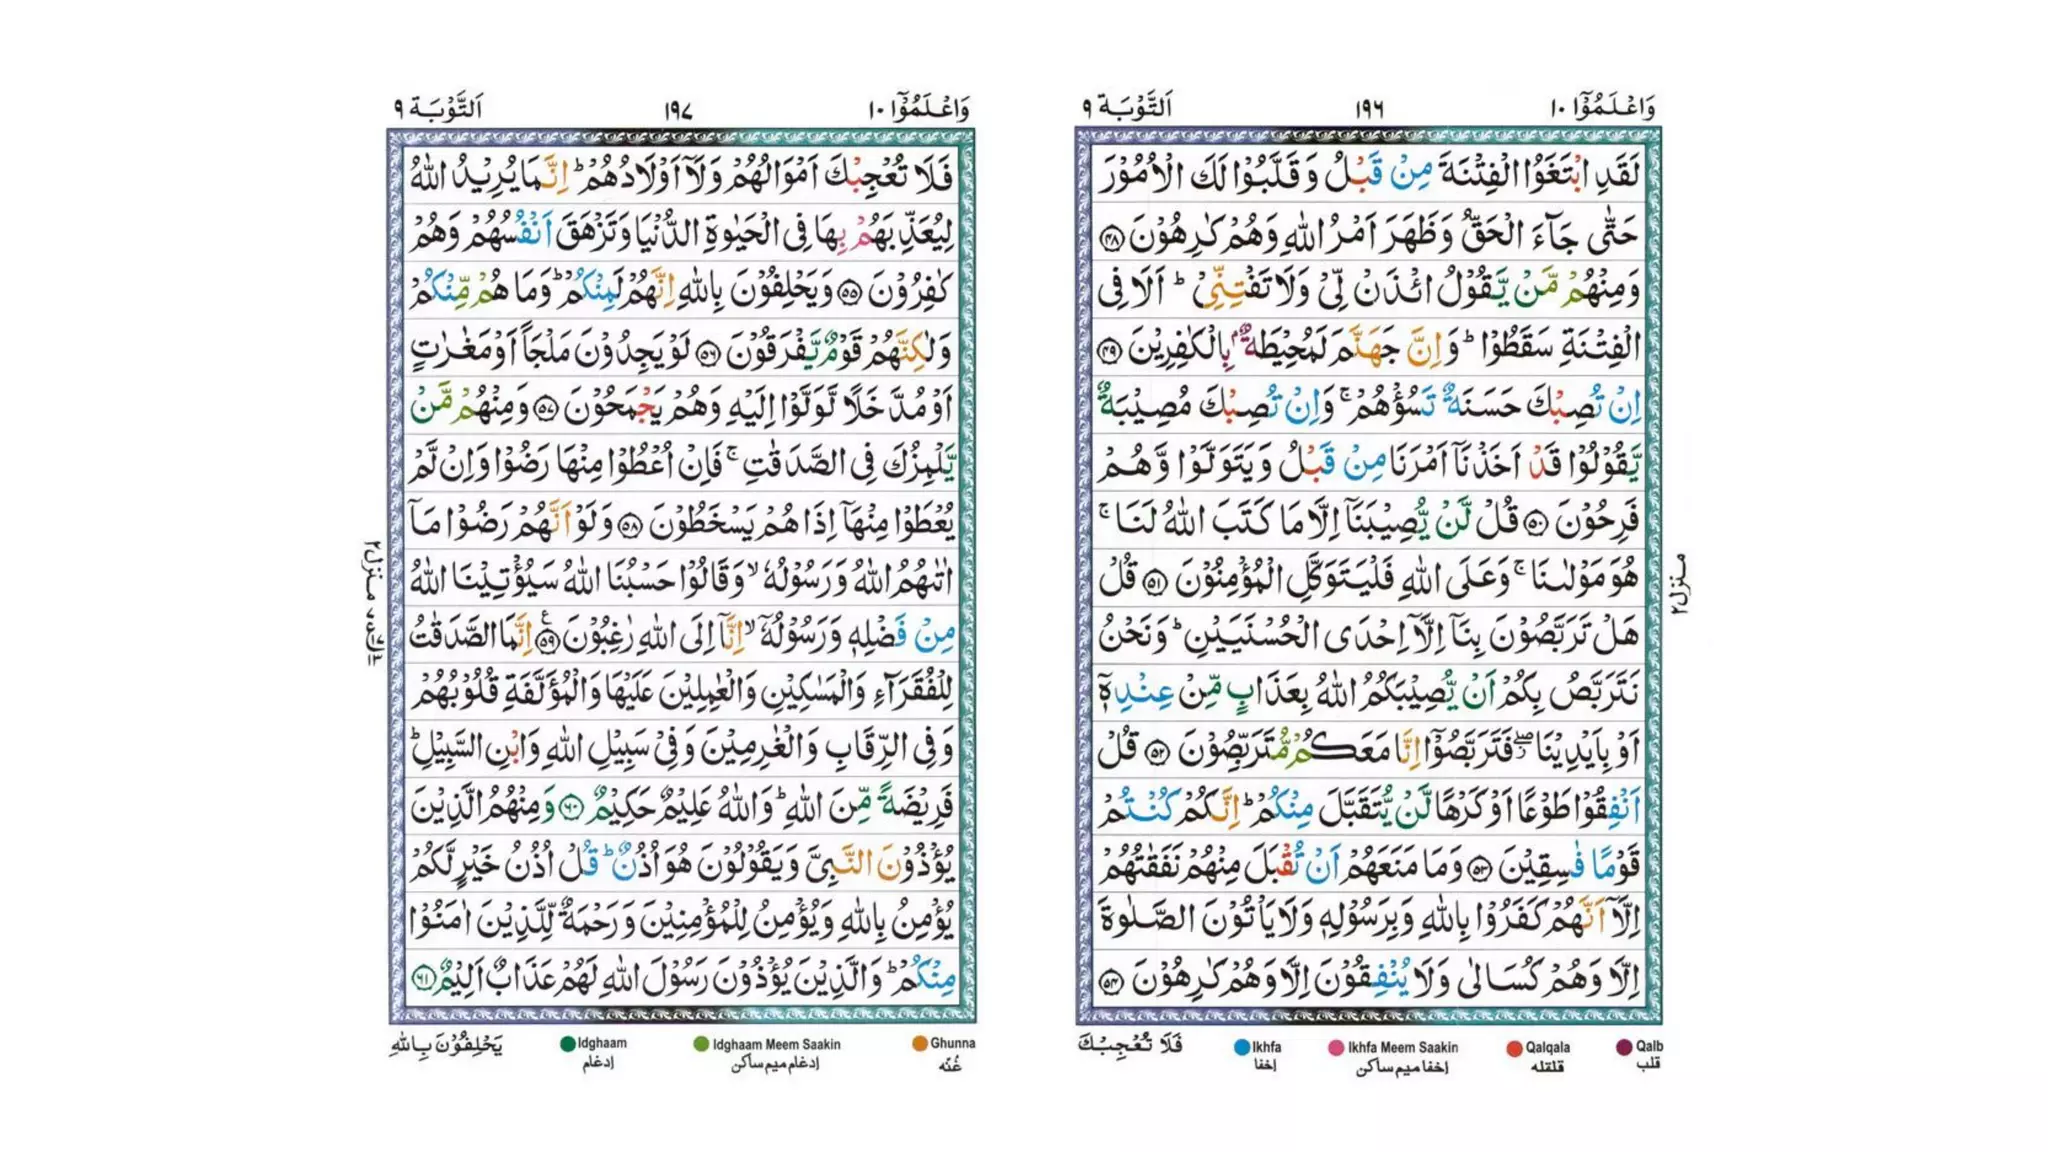 وَاعْلَمُوْۤا ١٠
١٩٦
اَلتَّوْبَة ٩
لَقَدِ ابْتَغَوُا الْفِتْنَةَ مِنْ قَبْلُ وَ قَلَّبُوْا لَكَ الْاُمُوْرَ
حَتّٰى جَآءَ الْحَقُّ وَظَهَرَ اَمْرُ اللّٰهِ وَهُمْ كٰرِهُوْنَ ﴿٤٨﴾
وَمِنْهُمْ مَّنْ يَّقُوْلُ ائْذَنْ لِّىْ وَلَا تَفْتِنِّىْ ؕ اَلَا فِى
الْفِتْنَةِ سَقَطُوْا ؕ وَاِنَّ جَهَنَّمَ لَمُحِيْطَةٌۢ بِالْكٰفِرِيْنَ ﴿٤٩﴾
اِنْ تُصِبْكَ حَسَنَةٌ تَسُؤْهُمْ ۚ وَاِنْ تُصِبْكَ مُصِيْبَةٌ
يَّقُوْلُوْا قَدْ اَخَذْنَاۤ اَمْرَنَا مِنْ قَبْلُ وَيَتَوَلَّوْا وَّهُمْ
فَرِحُوْنَ ﴿٥٠﴾ قُلْ لَّنْ يُّصِيْبَنَاۤ اِلَّا مَا كَتَبَ اللّٰهُ لَنَا ۚ
هُوَ مَوْلٰٮنَا ۚ وَعَلَى اللّٰهِ فَلْيَتَوَكَّلِ الْمُؤْمِنُوْنَ ﴿٥١﴾ قُلْ
هَلْ تَرَبَّصُوْنَ بِنَاۤ اِلَّاۤ اِحْدَى الْحُسْنَيَيْنِ ؕ وَنَحْنُ
نَتَرَبَّصُ بِكُمْ اَنْ يُّصِيْبَكُمُ اللّٰهُ بِعَذَابٍ مِّنْ عِنْدِهٖۤ
اَوْ بِاَيْدِيْنَا ۖ فَتَرَبَّصُوْۤا اِنَّا مَعَكُمْ مُّتَرَبِّصُوْنَ ﴿٥٢﴾ قُلْ
اَنْفِقُوْا طَوْعًا اَوْ كَرْهًا لَّنْ يُّتَقَبَّلَ مِنْكُمْ ؕ اِنَّكُمْ كُنْتُمْ
قَوْمًا فٰسِقِيْنَ ﴿٥٣﴾ وَمَا مَنَعَهُمْ اَنْ تُقْبَلَ مِنْهُمْ نَفَقٰتُهُمْ
اِلَّاۤ اَنَّهُمْ كَفَرُوْا بِاللّٰهِ وَبِرَسُوْلِهٖ وَلَا يَاْتُوْنَ الصَّلٰوةَ
اِلَّا وَهُمْ كُسَالٰى وَلَا يُنْفِقُوْنَ اِلَّا وَهُمْ كٰرِهُوْنَ ﴿٥٤﴾
منزل٢
فَلَا تُعْجِبْكَ
Ikhfa
اخفا
Ikhfa Meem Saakin
اخفا میم ساکن
Qalqala
قلقله
Qalb
قلب
وَاعْلَمُوْۤا ١٠
١٩٧
اَلتَّوْبَة ٩
فَلَا تُعْجِبْكَ اَمْوَالُهُمْ وَلَاۤ اَوْلَادُهُمْ ؕ اِنَّمَا يُرِيْدُ اللّٰهُ
لِيُعَذِّبَهُمْ بِهَا فِى الْحَيٰوةِ الدُّنْيَا وَتَزْهَقَ اَنْفُسُهُمْ وَهُمْ
كٰفِرُوْنَ ﴿٥٥﴾ وَيَحْلِفُوْنَ بِاللّٰهِ اِنَّهُمْ لَمِنْكُمْ ؕ وَمَا هُمْ مِّنْكُمْ
وَلٰكِنَّهُمْ قَوْمٌ يَّفْرَقُوْنَ ﴿٥٦﴾ لَوْ يَجِدُوْنَ مَلْجَاً اَوْ مَغٰرٰتٍ
اَوْ مُدَّخَلًا لَّوَلَّوْا اِلَيْهِ وَهُمْ يَجْمَحُوْنَ ﴿٥٧﴾ وَمِنْهُمْ مَّنْ
يَّلْمِزُكَ فِى الصَّدَقٰتِ ۚ فَاِنْ اُعْطُوْا مِنْهَا رَضُوْا وَاِنْ لَّمْ
يُعْطَوْا مِنْهَاۤ اِذَا هُمْ يَسْخَطُوْنَ ﴿٥٨﴾ وَلَوْ اَنَّهُمْ رَضُوْا مَاۤ
اٰتٰٮهُمُ اللّٰهُ وَرَسُوْلُهٗ ۙ وَقَالُوْا حَسْبُنَا اللّٰهُ سَيُؤْتِيْنَا اللّٰهُ
مِنْ فَضْلِهٖ وَرَسُوْلُهٗۤ ۙ اِنَّاۤ اِلَى اللّٰهِ رٰغِبُوْنَ ﴿٥٩﴾ اِنَّمَا الصَّدَقٰتُ
لِلْفُقَرَآءِ وَالْمَسٰكِيْنِ وَالْعٰمِلِيْنَ عَلَيْهَا وَالْمُؤَلَّفَةِ قُلُوْبُهُمْ
وَفِى الرِّقَابِ وَالْغٰرِمِيْنَ وَفِىْ سَبِيْلِ اللّٰهِ وَابْنِ السَّبِيْلِ ؕ
فَرِيْضَةً مِّنَ اللّٰهِ ؕ وَاللّٰهُ عَلِيْمٌ حَكِيْمٌ ﴿٦٠﴾ وَمِنْهُمُ الَّذِيْنَ
يُؤْذُوْنَ النَّبِىَّ وَيَقُوْلُوْنَ هُوَ اُذُنٌ ؕ قُلْ اُذُنُ خَيْرٍ لَّكُمْ
يُؤْمِنُ بِاللّٰهِ وَيُؤْمِنُ لِلْمُؤْمِنِيْنَ وَرَحْمَةٌ لِّلَّذِيْنَ اٰمَنُوْا
مِنْكُمْ ؕ وَالَّذِيْنَ يُؤْذُوْنَ رَسُوْلَ اللّٰهِ لَهُمْ عَذَابٌ اَلِيْمٌ ﴿٦١﴾
منزل٢
يَحْلِفُوْنَ بِاللّٰهِ
Idghaam
إدغام
Idghaam Meem Saakin
إدغام میم ساکن
Ghunna
غُنّه